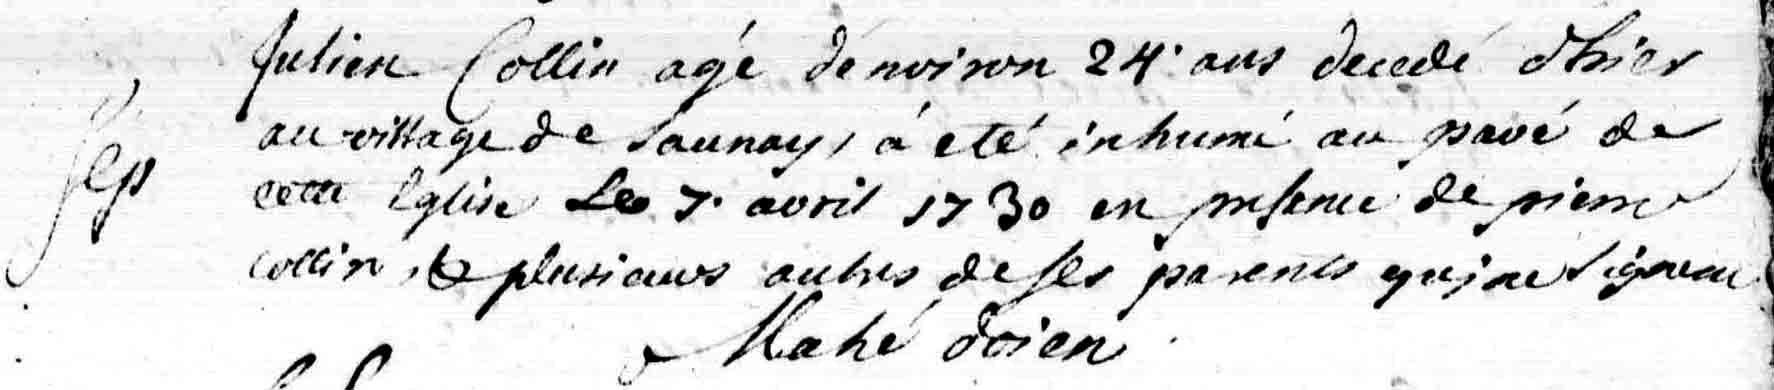 Julien Collin agé denviron 24 ans decedé dhier
sep
au village de Launay, a eté inhumé au pavé de
cette Eglise Le 7. avril 1730 en presence de pierre
collin, & plusieurs autres de ses parents qui ne signent
Mahé doien